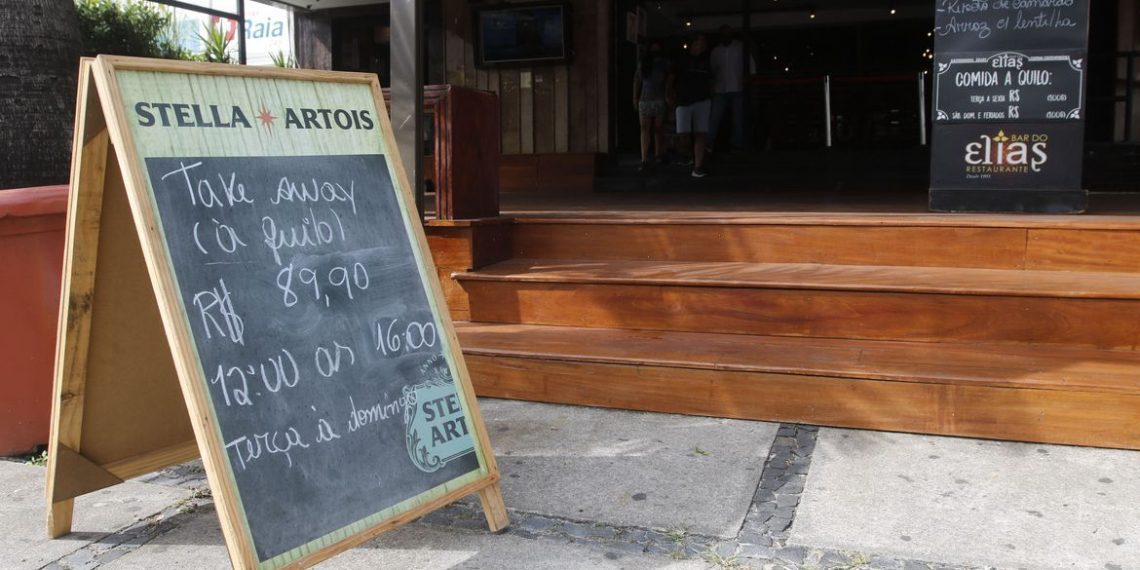 Raia
STELLA ARTOIS
Take away
(à quilo)
R$ 89,90
12:00 as 16:00
Terça à domingo
ANNO
STE
ART
Arroz c/ lentilha
elias
COMIDA A QUILO:
TERÇA A SEXTA R$
SÁB. DOM. E FERIADOS R$
BAR DO
elias
RESTAURANTE
Desde 1991